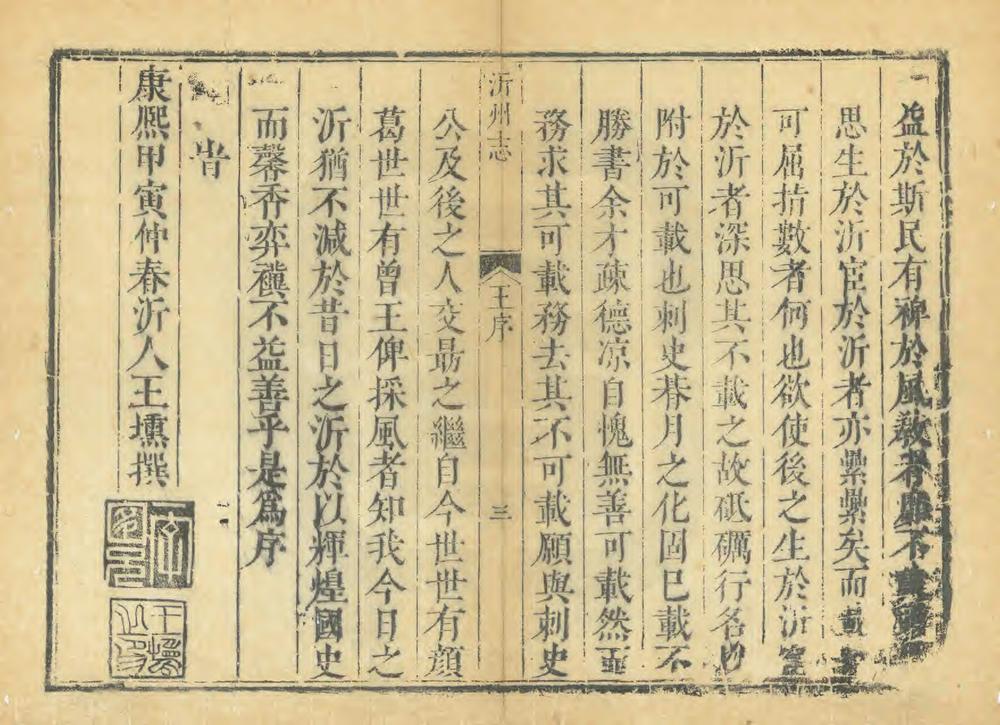 益於斯民有裨於風敎者
思生於沂宦於沂者亦纍纍矣而載
可屈指數者何也欲使後之生於沂宦
於沂者深思其不載之故砥礪行名
附於可載也刺史朞月之化固已載不
勝書余才疎德凉自愧無善可載然亟
務求其可載務去其不可載願與刺史
沂州志
王序
三
公及後之人交勗之繼自今世世有顔
葛世世有曾王俾採風者知我今日之
沂猶不減於昔日之沂於以輝煌國史
而馨香弈禩不益善乎是爲序
旹
康熙甲寅仲春沂人王壎撰
王壎之印